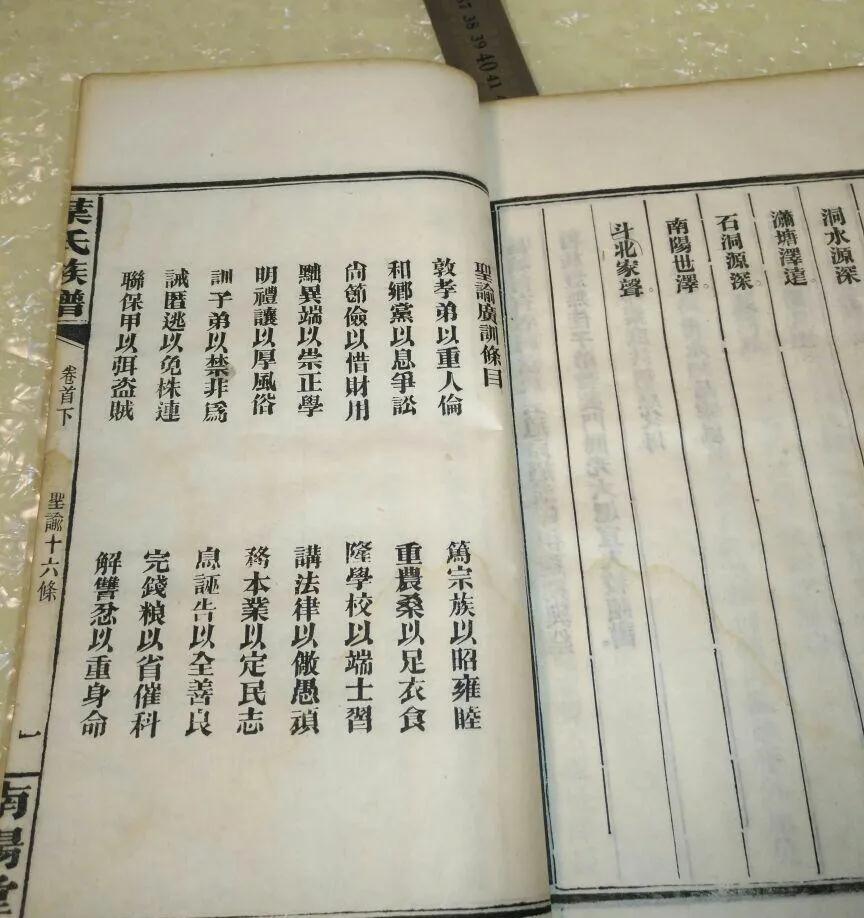 洞水源深
瀟塘澤遠
石洞源深
南陽世澤
斗北家聲
聖諭廣訓條目
敦孝弟以重人倫
篤宗族以昭雍睦
和鄉黨以息爭訟
重農桑以足衣食
尙節儉以惜財用
隆學校以端士習
黜異端以崇正學
講法律以儆愚頑
明禮讓以厚風俗
務本業以定民志
訓子弟以禁非爲
息誣告以全善良
誡匿逃以免株連
完錢粮以省催科
聯保甲以弭盗賊
解讐忿以重身命
葉氏族譜
卷首下
聖諭十六條
一
南陽堂
37 38 39 40 41